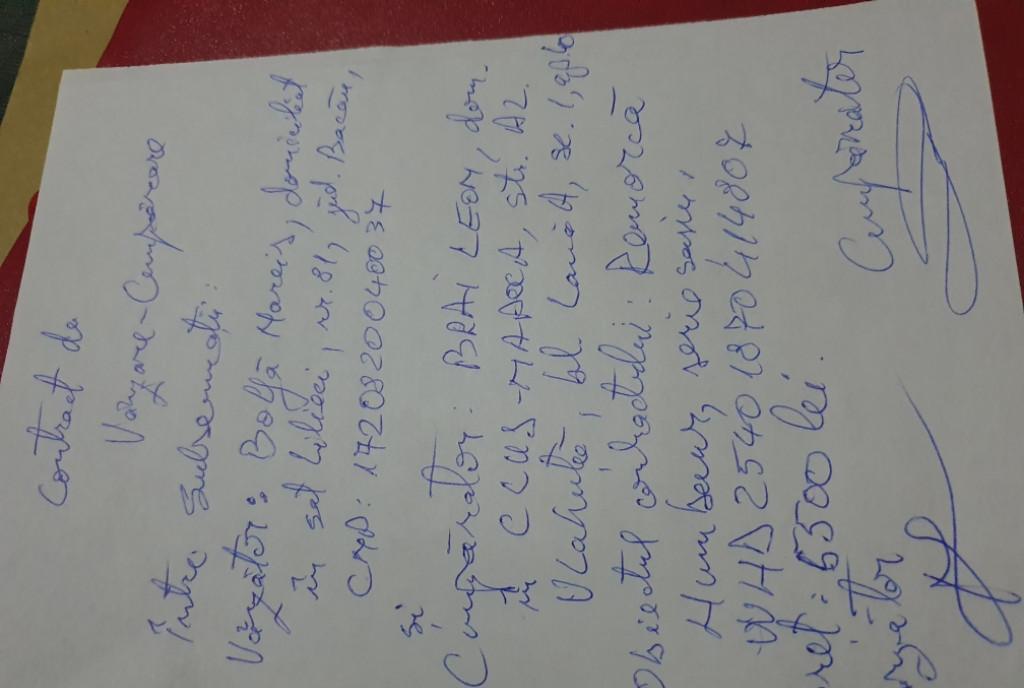 Contract de
Vânzare-Cumpărare
Între subsemnații:
Vânzător: Bolfă Marius, domiciliat
în sat Lilieci, nr. 81, jud. Bacău,
CNP: 1720820040037
și
Cumpărător: BRAI LEON, dom.
în CLUJ-NAPOCA, str. Al.
Vlahuță, bl. Lama A, sc. 1, ap 10
Obiectul contractului: Remorcă
Humbaur, serie sasiu,
WHD25401870414807
ret: 5500 lei.
nzător Cumpărător